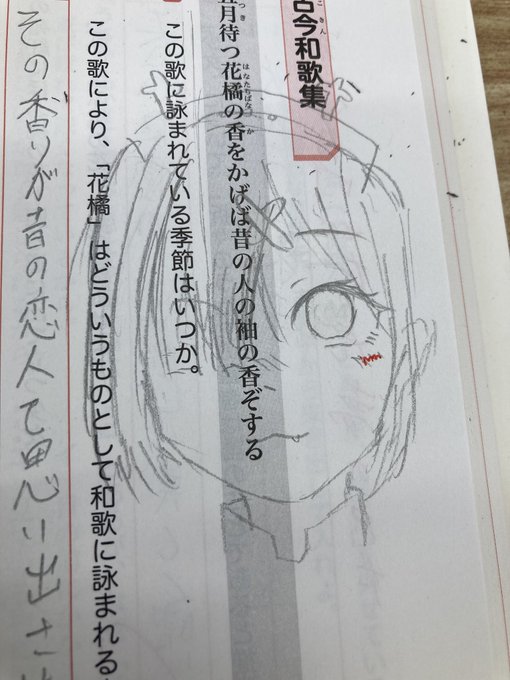 古今和歌集
五月待つ花橘の香をかげば昔の人の袖の香ぞする
この歌に詠まれている季節はいつか。
この歌により、「花橘」はどういうものとして和歌に詠まれる
その香りが昔の恋人て思い出させ